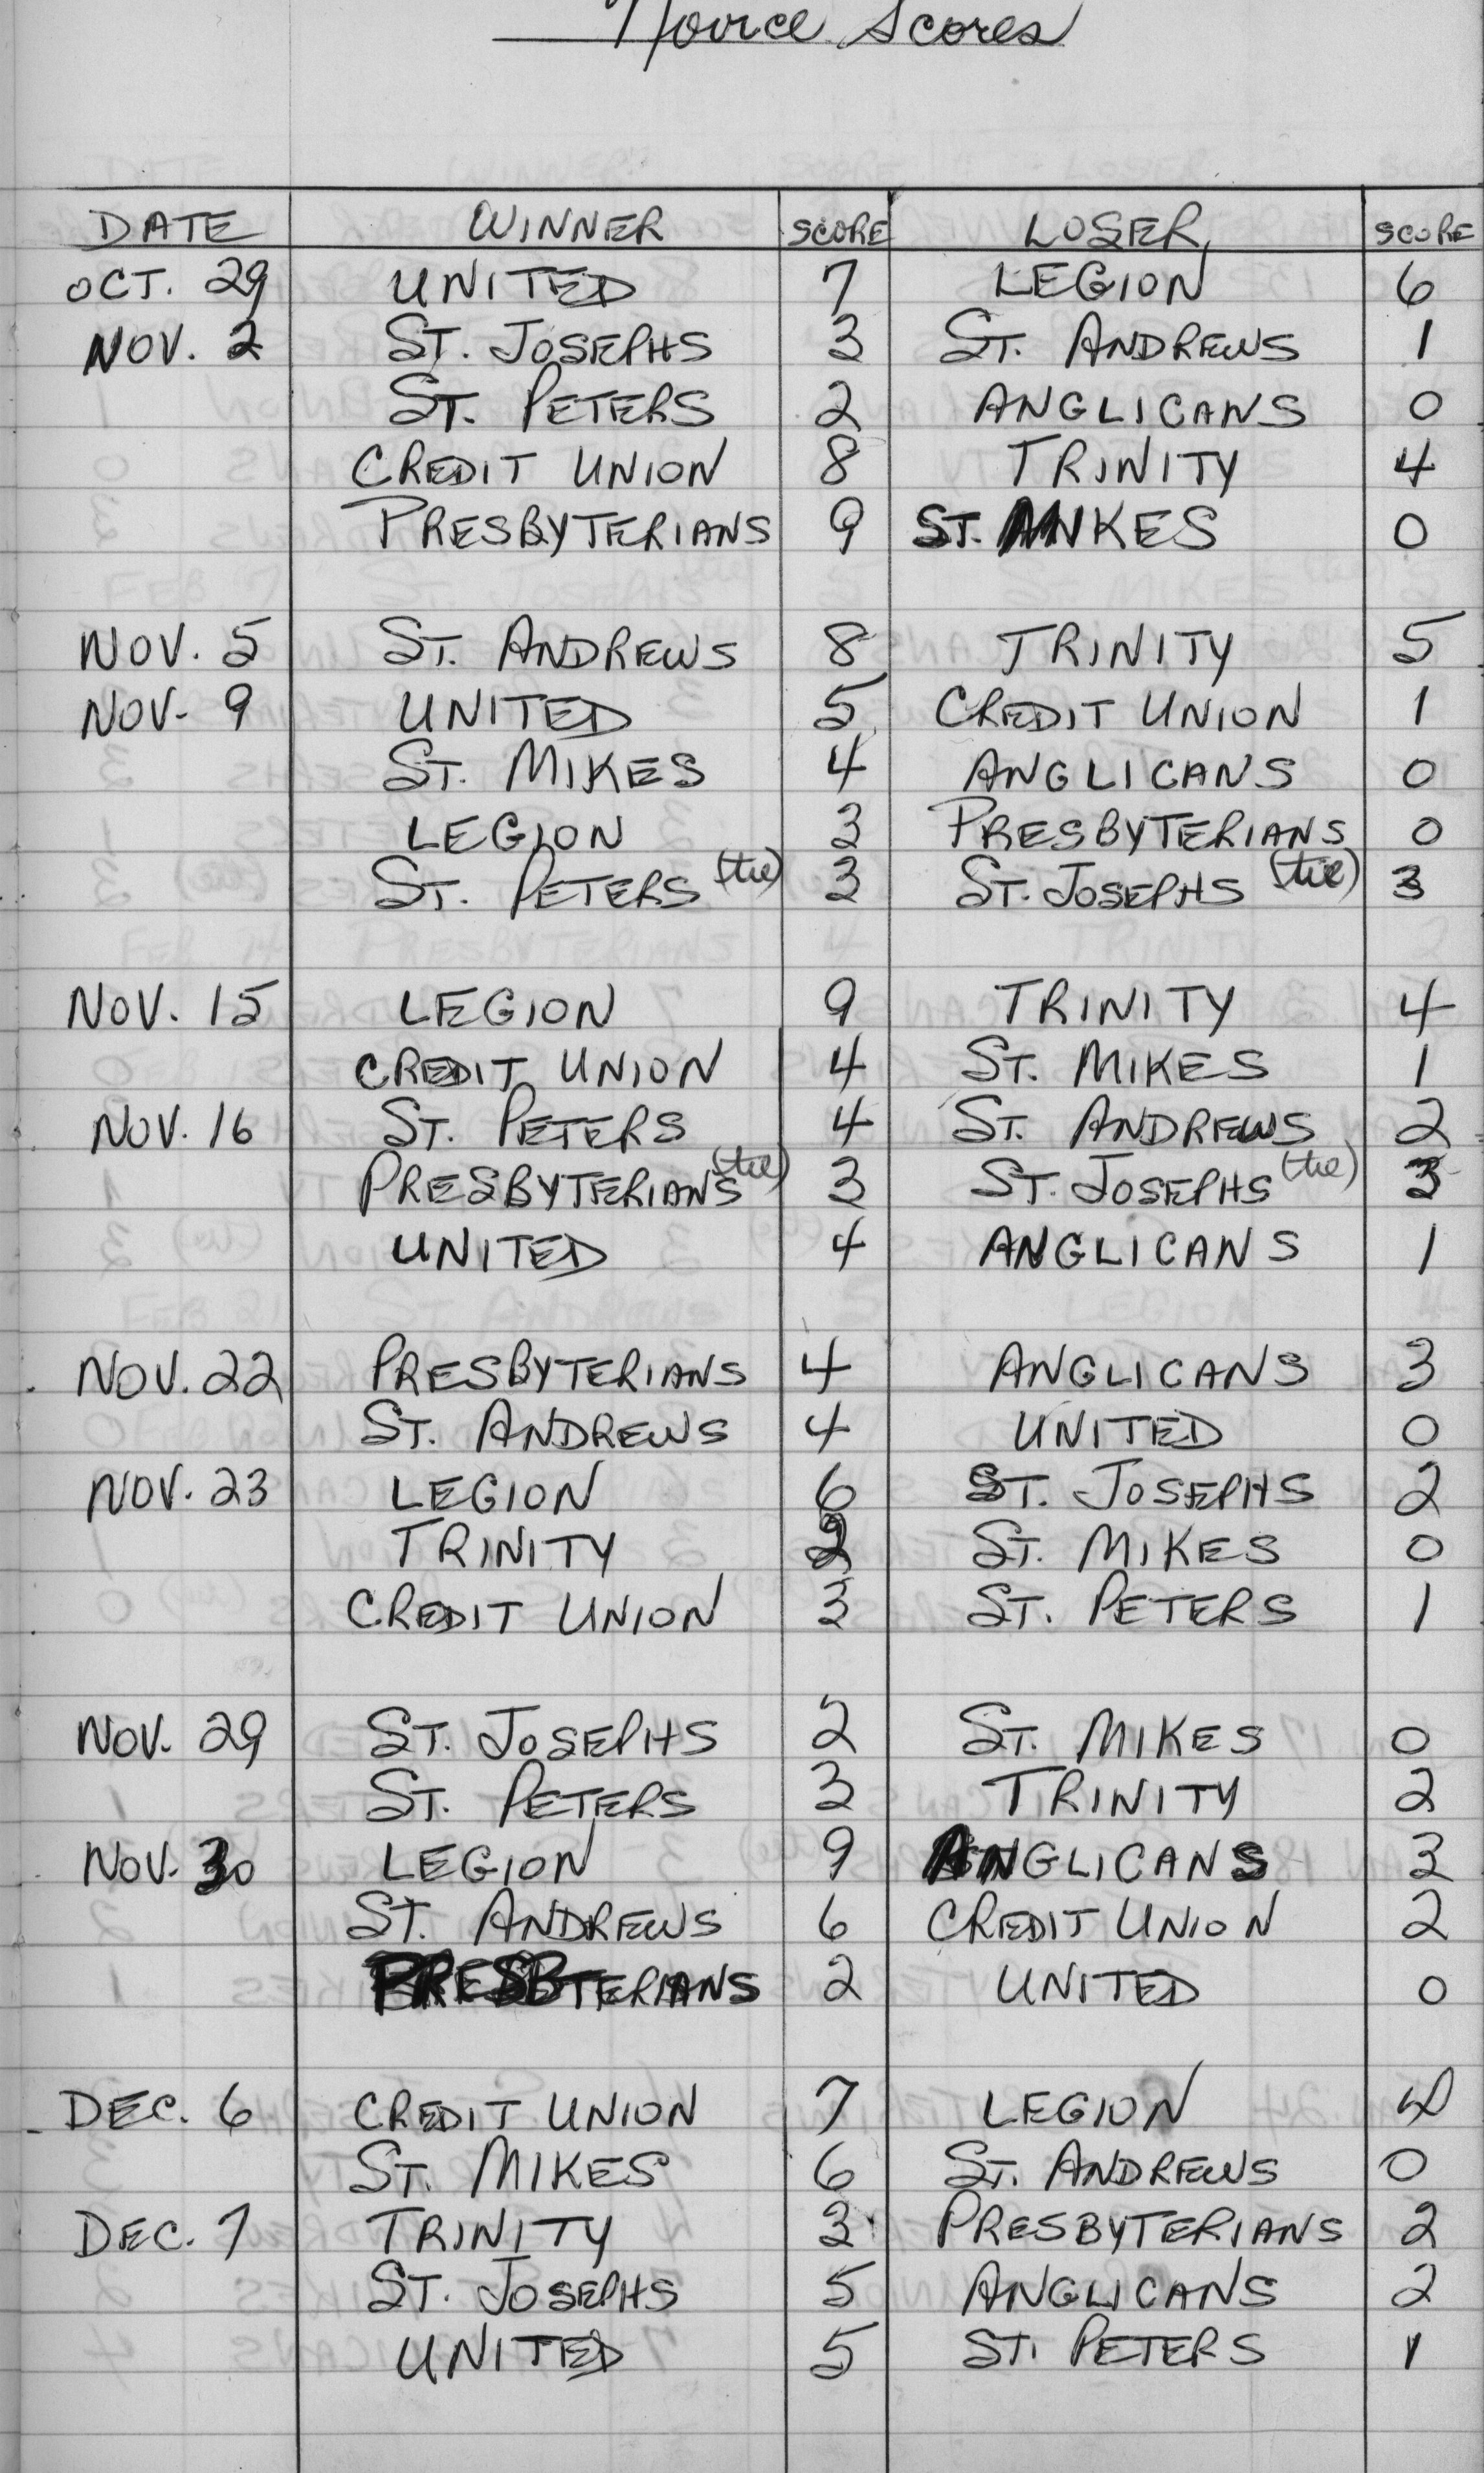 Novice Scores
DATE WINNER SCORE LOSER SCORE
OCT. 29 UNITED 7 LEGION 6
NOV. 2 ST. JOSEPHS 3 ST. ANDREWS 1
ST. PETERS 2 ANGLICANS 0
CREDIT UNION 8 TRINITY 4
PRESBYTERIANS 9 ST. MIKES 0
NOV. 5 ST. ANDREWS 8 TRINITY 5
NOV. 9 UNITED 5 CREDIT UNION 1
ST. MIKES 4 ANGLICANS 0
LEGION 3 PRESBYTERIANS 0
ST. PETERS (tie) 3 ST. JOSEPHS (tie) 3
NOV. 15 LEGION 9 TRINITY 4
CREDIT UNION 4 ST. MIKES 1
NOV. 16 ST. PETERS 4 ST. ANDREWS 2
PRESBYTERIANS (tie) 3 ST. JOSEPHS (tie) 3
UNITED 4 ANGLICANS 1
NOV. 22 PRESBYTERIANS 4 ANGLICANS 3
ST. ANDREWS 4 UNITED 0
NOV. 23 LEGION 6 ST. JOSEPHS 2
TRINITY 2 ST. MIKES 0
CREDIT UNION 3 ST. PETERS 1
NOV. 29 ST. JOSEPHS 2 ST. MIKES 0
ST. PETERS 3 TRINITY 2
NOV. 30 LEGION 9 ANGLICANS 3
ST. ANDREWS 6 CREDIT UNION 2
PRESBTERIANS 2 UNITED 0
DEC. 6 CREDIT UNION 7 LEGION 4
ST. MIKES 6 ST. ANDREWS 0
DEC. 7 TRINITY 3 PRESBYTERIANS 2
ST. JOSEPHS 5 ANGLICANS 2
UNITED 5 ST. PETERS 1